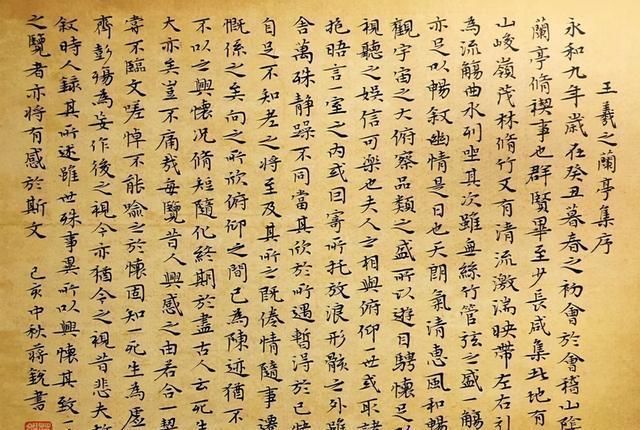 王羲之蘭亭集序
永和九年歲在癸丑暮春之初會於會稽山陰
蘭亭脩禊事也群賢畢至少長咸集此地有
山峻嶺茂林脩竹又有清流激湍映帶左右引
為流觴曲水列坐其次雖無絲竹管弦之盛一觴
亦足以暢敘幽情是日也天朗氣清惠風和暢
觀宇宙之大俯察品類之盛所以遊目騁懷足以
視聽之娛信可樂也夫人之相與俯仰一世或取諸
抱晤言一室之內或因寄所托放浪形骸之外雖
舍萬殊靜躁不同當其欣於所遇暫得於己快
自足不知老之將至及其所之既倦情隨事遷
慨係之矣向之所欣俯仰之間已為陳迹猶不
不以之興懷況脩短隨化終期於盡古人云死生
大亦矣豈不痛哉每覽昔人興感之由若合一契
嘗不臨文嗟悼不能喻之於懷固知一死生為虛
齊彭殤為妄作後之視今亦猶今之視昔悲夫故
敘時人錄其所述雖世殊事異所以興懷其致一
之覽者亦將有感於斯文 己亥中秋蔣銳書